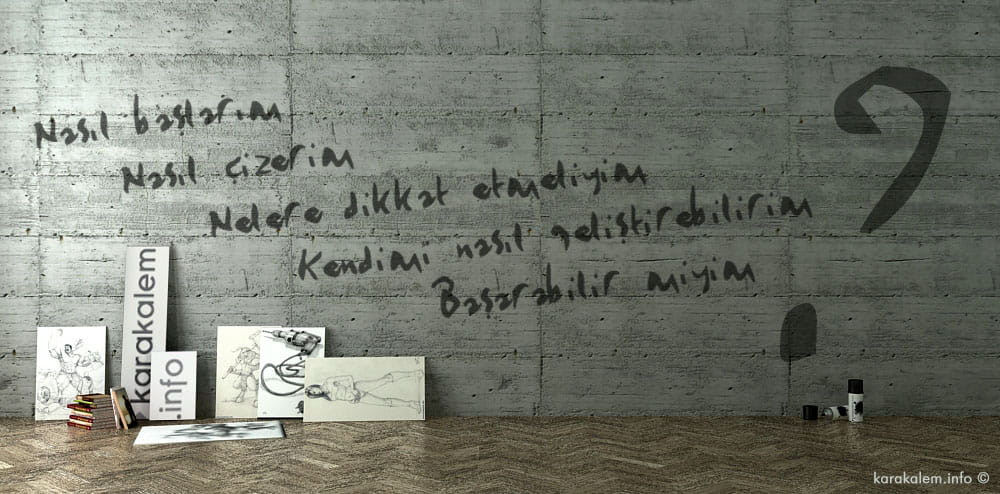 Nasıl başlarım
Nasıl çizerim
Nelere dikkat etmeliyim
Kendimi nasıl geliştirebilirim
Başarabilir miyim
?
karakalem
.info
karakalem.info ©